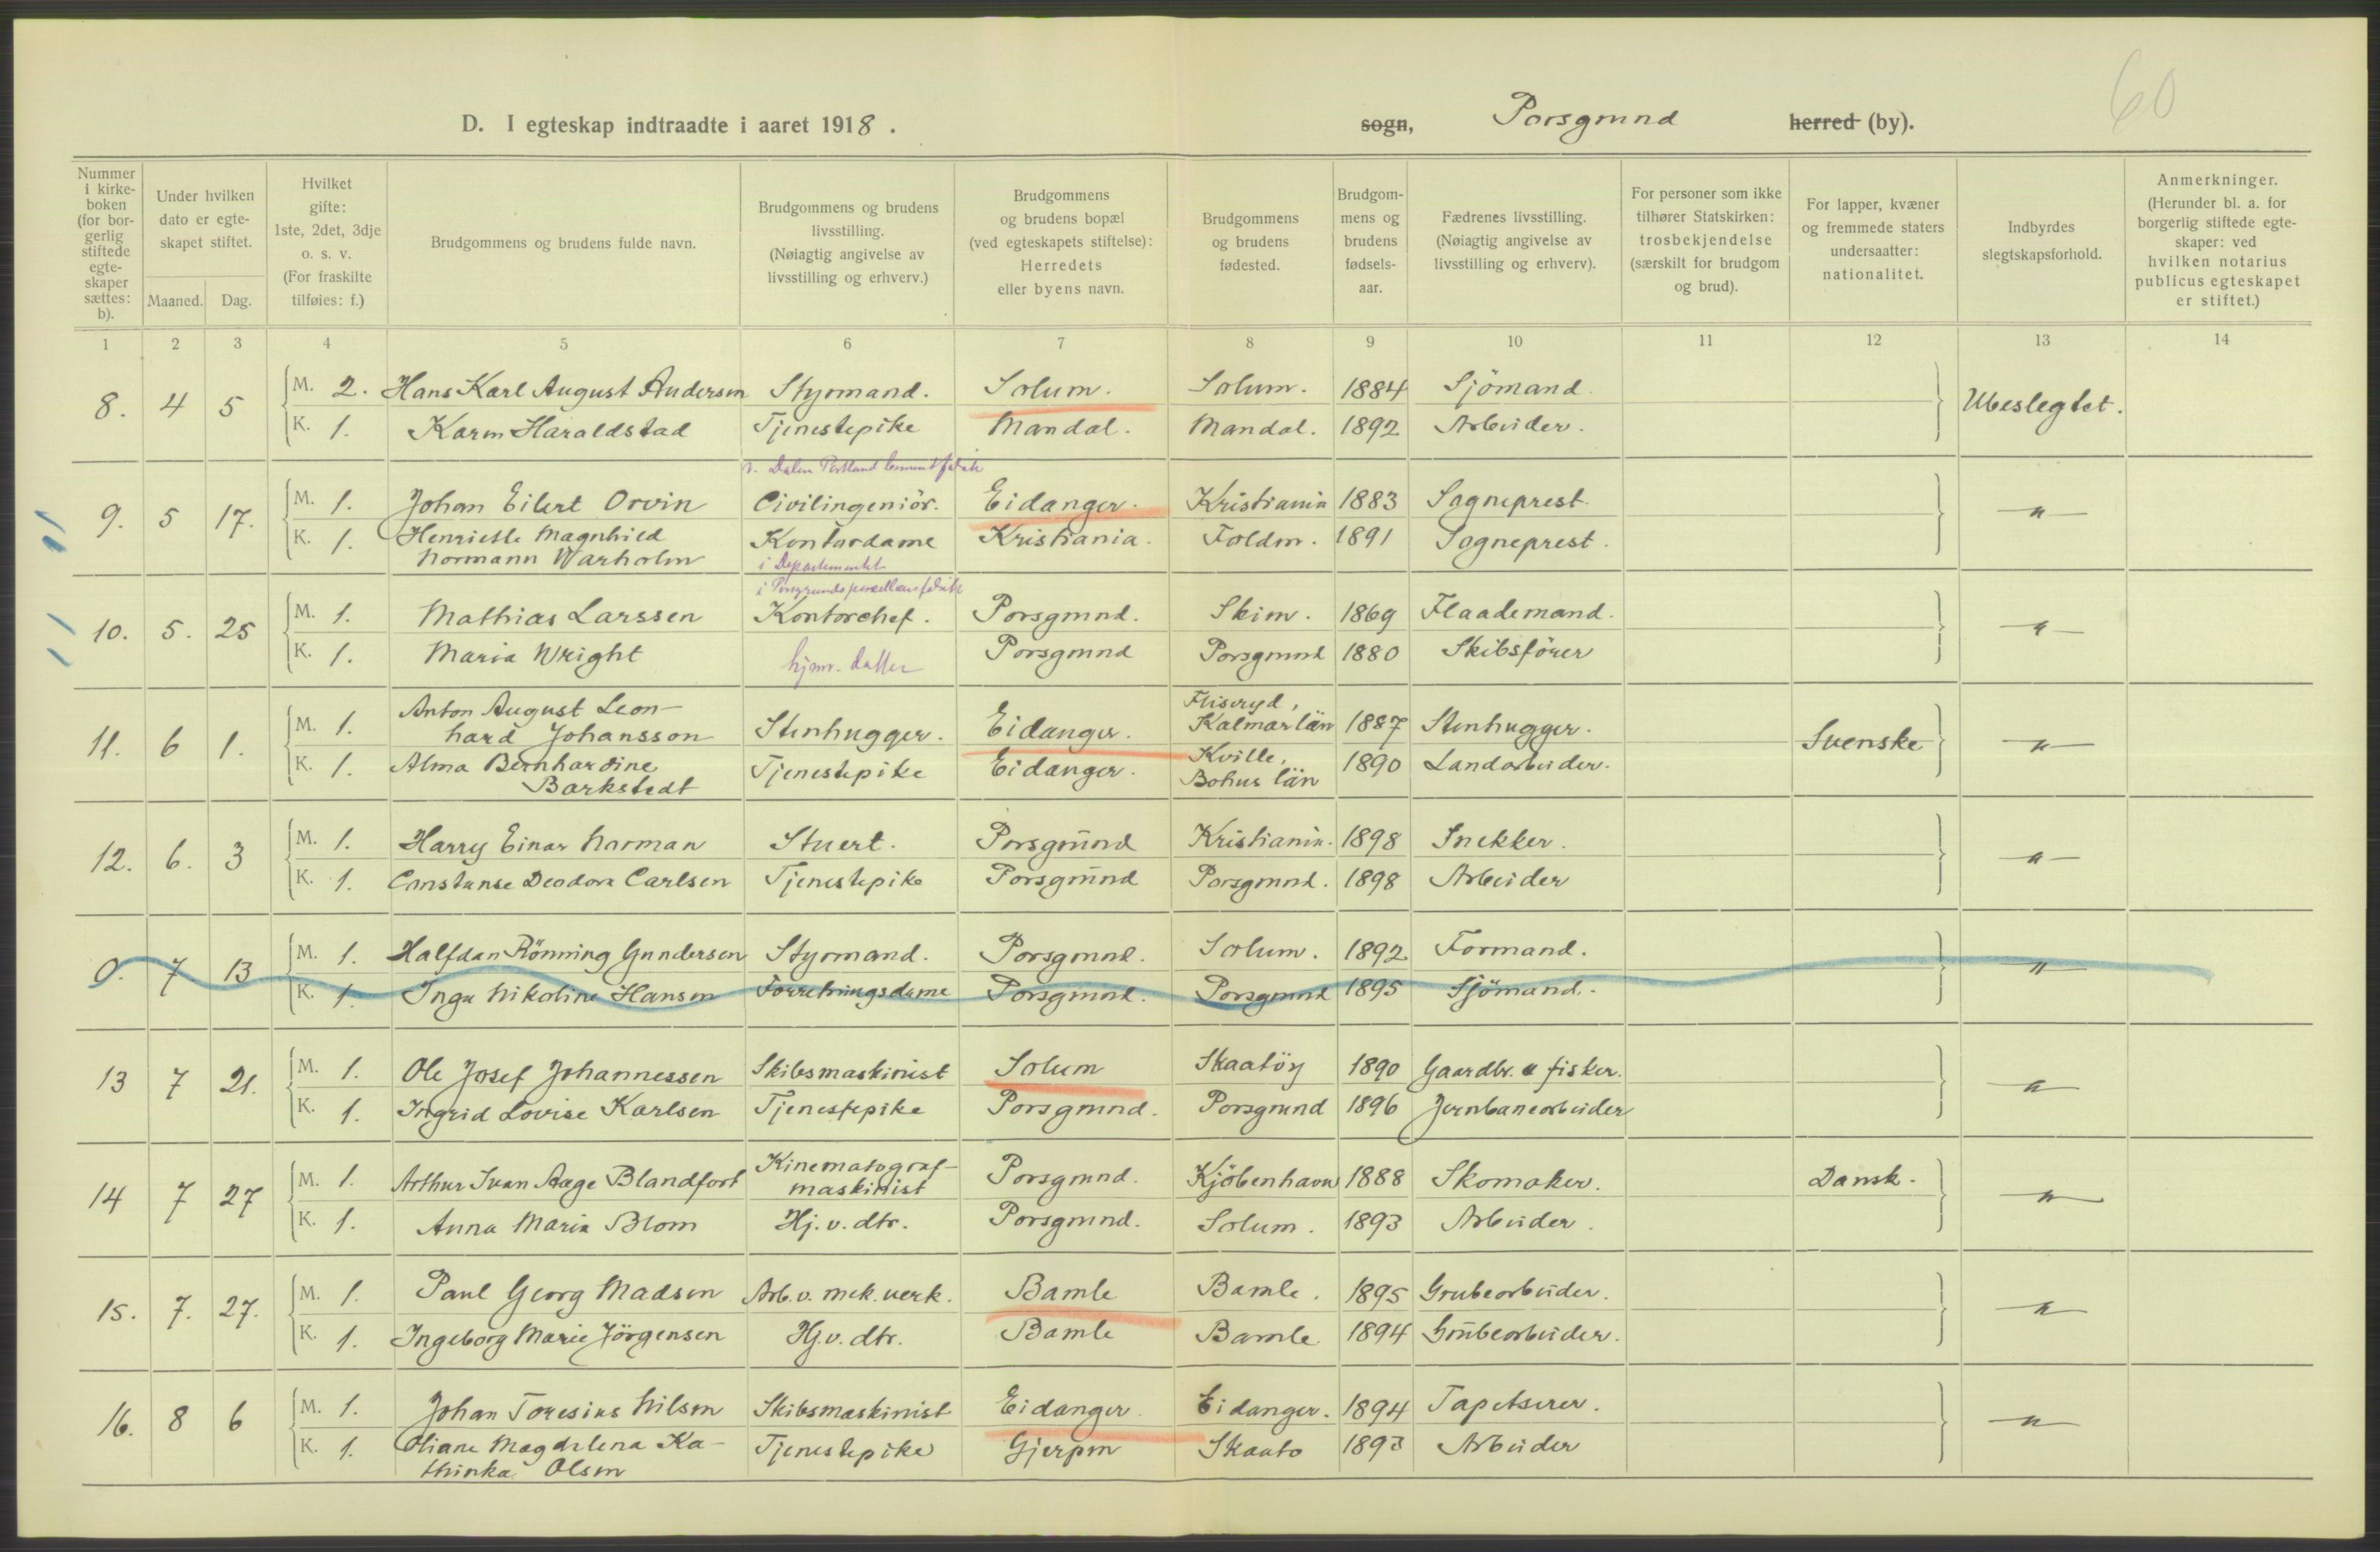 60
D. I egteskap indtraadte i aaret 1918. sogn, Porsgrund herred (by).
Nummer i kirkeboken (for borgerlig stiftede egteskaper sættes: b).
Under hvilken dato er egteskapet stiftet.
Maaned. Dag.
Hvilket gifte: 1ste, 2det, 3dje o. s. v. (For fraskilte tilføies: f.)
Brudgommens og brudens fulde navn.
Brudgommens og brudens livsstilling. (Nøiagtig angivelse av livsstilling og erhverv.)
Brudgommens og brudens bopæl (ved egteskapets stiftelse): Herredets eller byens navn.
Brudgommens og brudens fødested.
Brudgommens og brudens fødselsaar.
Fædrenes livsstilling. (Nøiagtig angivelse av livsstilling og erhverv).
For personer som ikke tilhører Statskirken: trosbekjendelse (særskilt for brudgom og brud).
For lapper, kvæner og fremmede staters undersaatter: nationalitet.
Indbyrdes slegtskapsforhold.
Anmerkninger. (Herunder bl. a. for borgerlig stiftede egteskaper: ved hvilken notarius publicus egteskapet er stiftet.)
1 2 3 4 5 6 7 8 9 10 11 12 13 14
8. 4 5 M. 2. Hans Karl August Andersen Styrmand. Solum. Solum. 1884 Sjömand. Ubeslegtet.
K. 1. Karen Haraldstad Tjenestepike Mandal. Mandal. 1892 Arbeider.
v. Dalen Portland Cementfabrik
9. 5 17. M. 1. Johan Eilert Orvin Civilingeniör. Eidanger. Kristiania 1883 Sogneprest. "
K. 1. Henriette Magnhild Kontordame Kristiania. Folden. 1891 Sogneprest.
Normann Warholm i Departementet
i Porsgrunds porcellænsfabrik
10. 5. 25 M. 1. Mathias Larssen Kontorchef. Porsgrund. Skien. 1869 Flaademand. "
K. 1. Maria Wright hjemv. datter Porsgrund Porsgrund 1880 Skibsförer
11. 6 1. M. 1. Anton August Leon- Fliseryd,
hard Johansson Stenhugger. Eidanger. Kalmar län 1887 Stenhugger. Svenske "
K. 1. Alma Bernhardine Tjenestepike Eidanger. Kville, 1890 Landarbeider.
Barkstedt Bohus län
12. 6. 3 M. 1. Harry Einar Norman Stuert. Porsgrund Kristiania. 1898 Snekker. "
K. 1. Constanse Deodora Carlsen Tjenestepike Porsgrund Porsgrund. 1898 Arbeider
0. 7 13 M. 1. Halfdan Rönning Gundersen Styrmand. Porsgrund. Solum. 1892 Formand. "
K. 1. Inga Nikoline Hansen Forretningsdame Porsgrund. Porsgrund 1895 Sjömand.
13 7 21. M. 1. Ole Josef Johannessen Skibsmaskinist Solum Skaatöy 1890 Gaardbr. & fisker. "
K. 1. Ingrid Lovise Karlsen Tjenestepike Porsgrund. Porsgrund 1896 Jernbanearbeider
14 7 27 M. 1. Arthur Ivan Aage Blandfort Kinematograf-
maskinist Porsgrund. Kjöbenhavn 1888 Skomaker. Dansk. "
K. 1. Anna Maria Blom Hj. v. dtr. Porsgrund. Solum. 1893 Arbeider.
15. 7. 27. M. 1. Paul Georg Madsen Arb. v. mek. verk. Bamle Bamle. 1895 Grubearbeider. "
K. 1. Ingeborg Marie Jörgensen Hj. v. dtr. Bamle Bamle 1894 Grubearbeider.
16. 8 6 M. 1. Johan Toresius Nilsen Skibsmaskinist Eidanger Eidanger. 1894 Tapetserer. "
K. 1. Oliane Magdalena Ka- Tjenestepike Gjerpen Skaato 1893 Arbeider
thinka Olsen